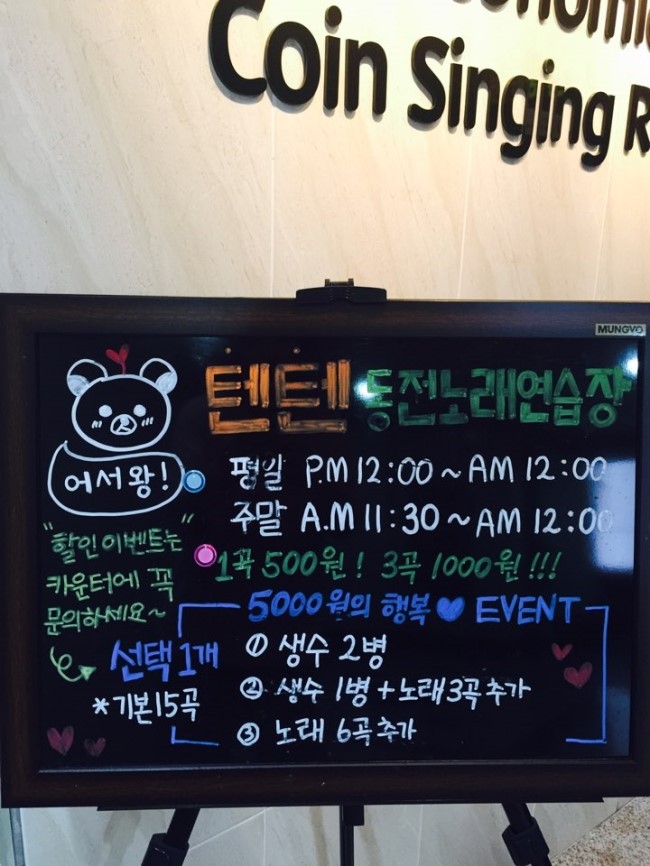 Coin Singing
MUNGYO
텐텐 동전노래연습장
어서왕!
평일 P.M 12:00 ~ AM 12:00
주말 A.M 11:30 ~ AM 12:00
"할인 이벤트는"
카운터에 꼭
문의하세요~
1곡 500원! 3곡 1000원!!!
5000원의 행복 EVENT
선택 1개
*기본 15곡
① 생수 2병
② 생수 1병 + 노래 3곡 추가
③ 노래 6곡 추가